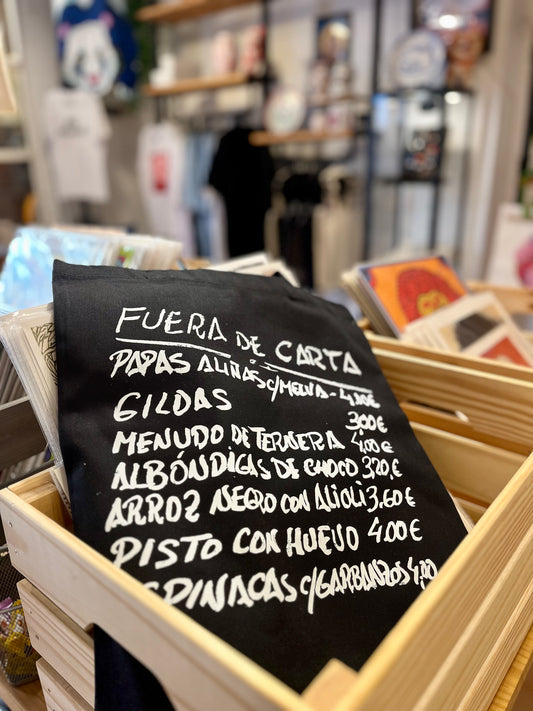 FUERA DE CARTA
PAPAS ALIÑAS C/MELVA - 4,80€
GILDAS 3,00€
MENUDO DE TERNERA 4,00€
ALBÓNDIGAS DE CHOCO 3,20,€
ARROZ NEGRO CON ALIOLI 3,60€
PISTO CON HUEVO 4,00€
ESPINACAS C/GARBANZOS